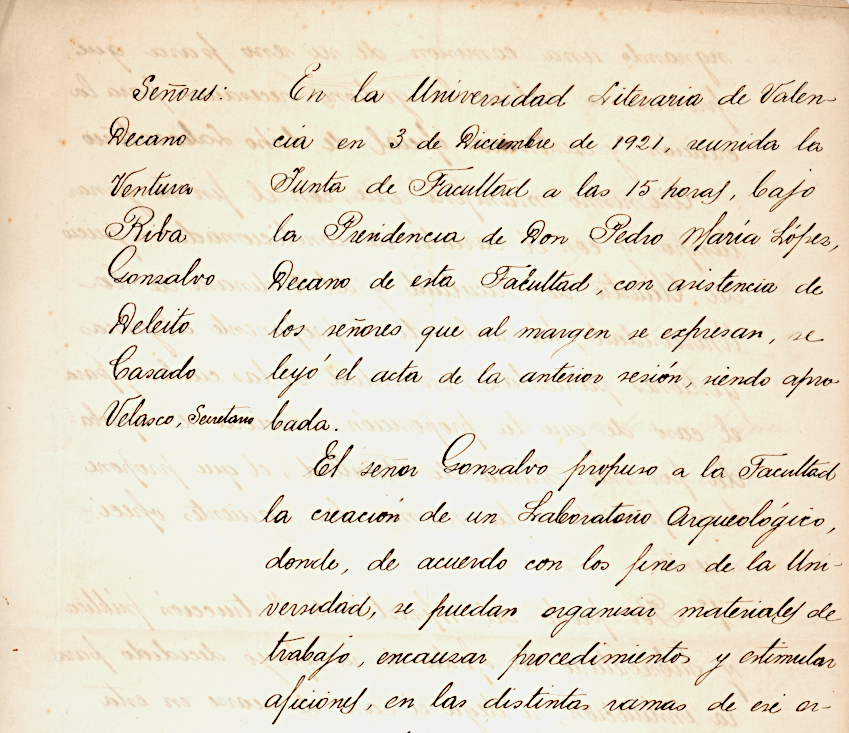 Señores:
Decano
Ventura
Riba
Gonzalvo
Deleito
Casado
Velasco, Secretario
En la Universidad Literaria de Valen-
cia en 3 de Diciembre de 1921, reunida la
Junta de Facultad a las 15 horas, bajo
la Presidencia de Don Pedro María López,
Decano de esta Facultad, con asistencia de
los señores que al margen se expresan, se
leyó el acta de la anterior sesión, siendo apro-
bada.
El señor Gonzalvo propuso a la Facultad
la creación de un Laboratorio Arqueológico,
donde, de acuerdo con los fines de la Uni-
versidad, se puedan organizar materiales de
trabajo, encauzar procedimientos y estimular
aficiones, en las distintas ramas de ese or-